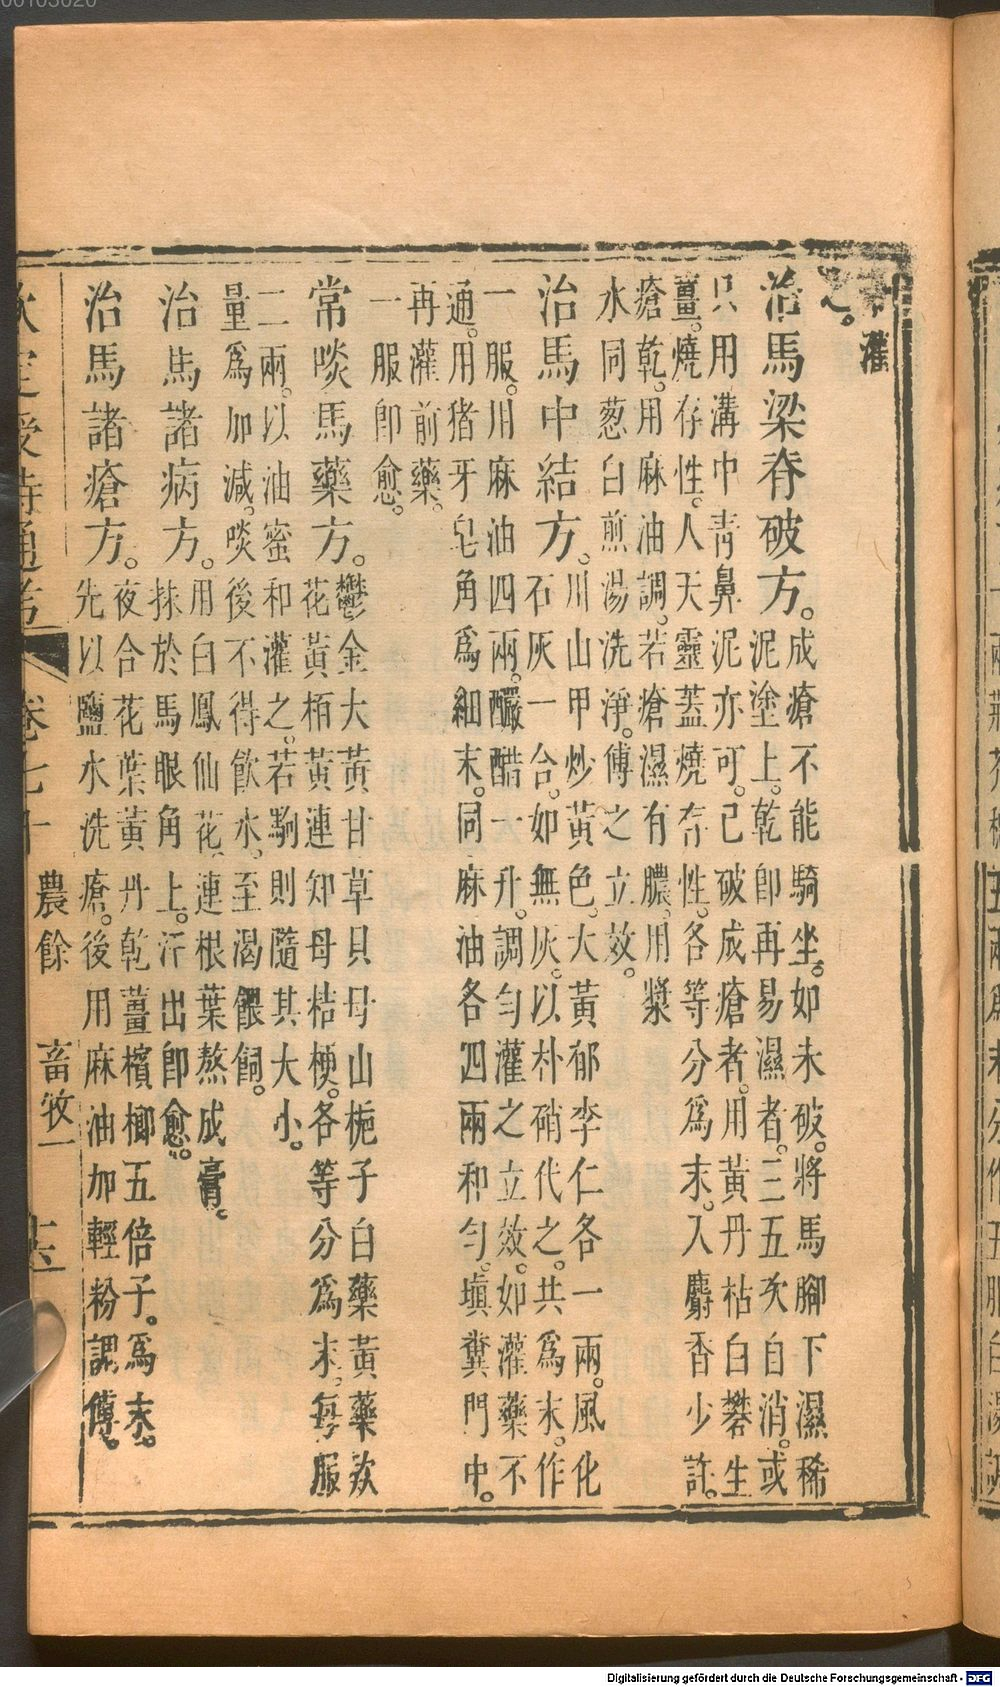 灌
之。
治馬梁脊破方。成瘡不能騎坐。如未破。將馬腳下濕稀
泥塗上。乾卽再易濕者。三五次自消。或
只用溝中靑鼻泥亦可。已破成瘡者。用黃丹枯白礬生
薑。燒存性。人天靈蓋燒存性。各等分爲末。入麝香少許。
瘡乾。用麻油調。若瘡濕有膿。用漿
水同葱白煎湯洗淨。傅之立效。
治馬中結方。川山甲炒黃色。大黃郁李仁各一兩。風化
石灰一合。如無灰。以朴硝代之。共爲末。作
一服。用麻油四兩。釅醋一升。調勻灌之立效。如灌藥不
通。用猪牙皂角爲細末。同麻油各四兩和勻。塡糞門中。
再灌前藥。
一服卽愈。
常啖馬藥方。鬱金大黃甘草貝母山梔子白藥黃藥欵
花黃栢黃連知母桔梗。各等分爲末。每服
二兩。以油蜜和灌之。若駒則隨其大小。
量爲加減。啖後不得飲水。至渴餵飼。
治馬諸病方。用白鳳仙花。連根葉熬成膏。
抹於馬眼角上。汗出卽愈。
治馬諸瘡方。夜合花葉黃丹乾薑檳榔五倍子。爲末。
先以鹽水洗瘡。後用麻油加輕粉調傅。
欽定授時通考 卷七十 農餘 畜牧一 十六
Digitalisierung gefördert durch die Deutsche Forschungsgemeinschaft - DFG